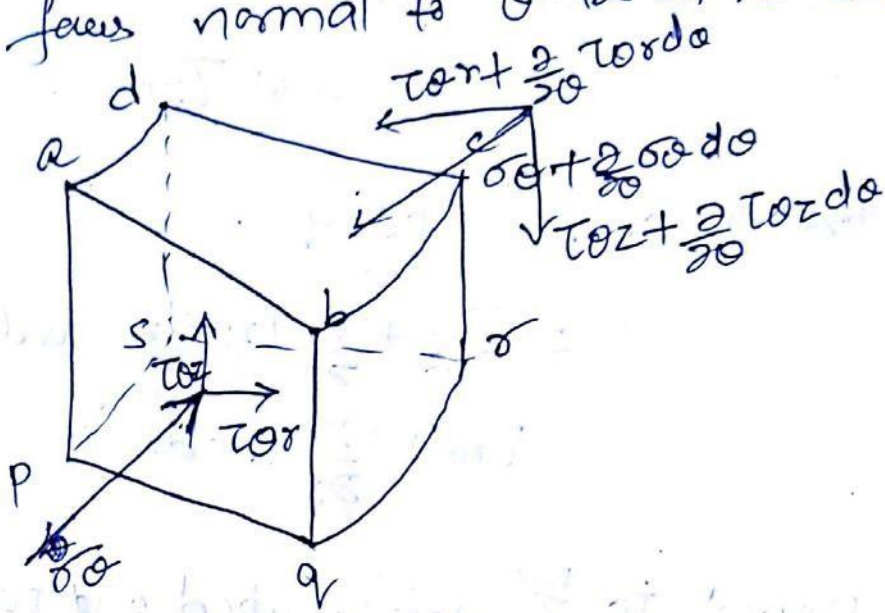 faces normal to θ
τθr + ∂/∂θ τθr dθ
d
c
a
σθ + ∂/∂θ σθ dθ
τθz + ∂/∂θ τθz dθ
b
s
r
τθz
τθr
p
σθ
q